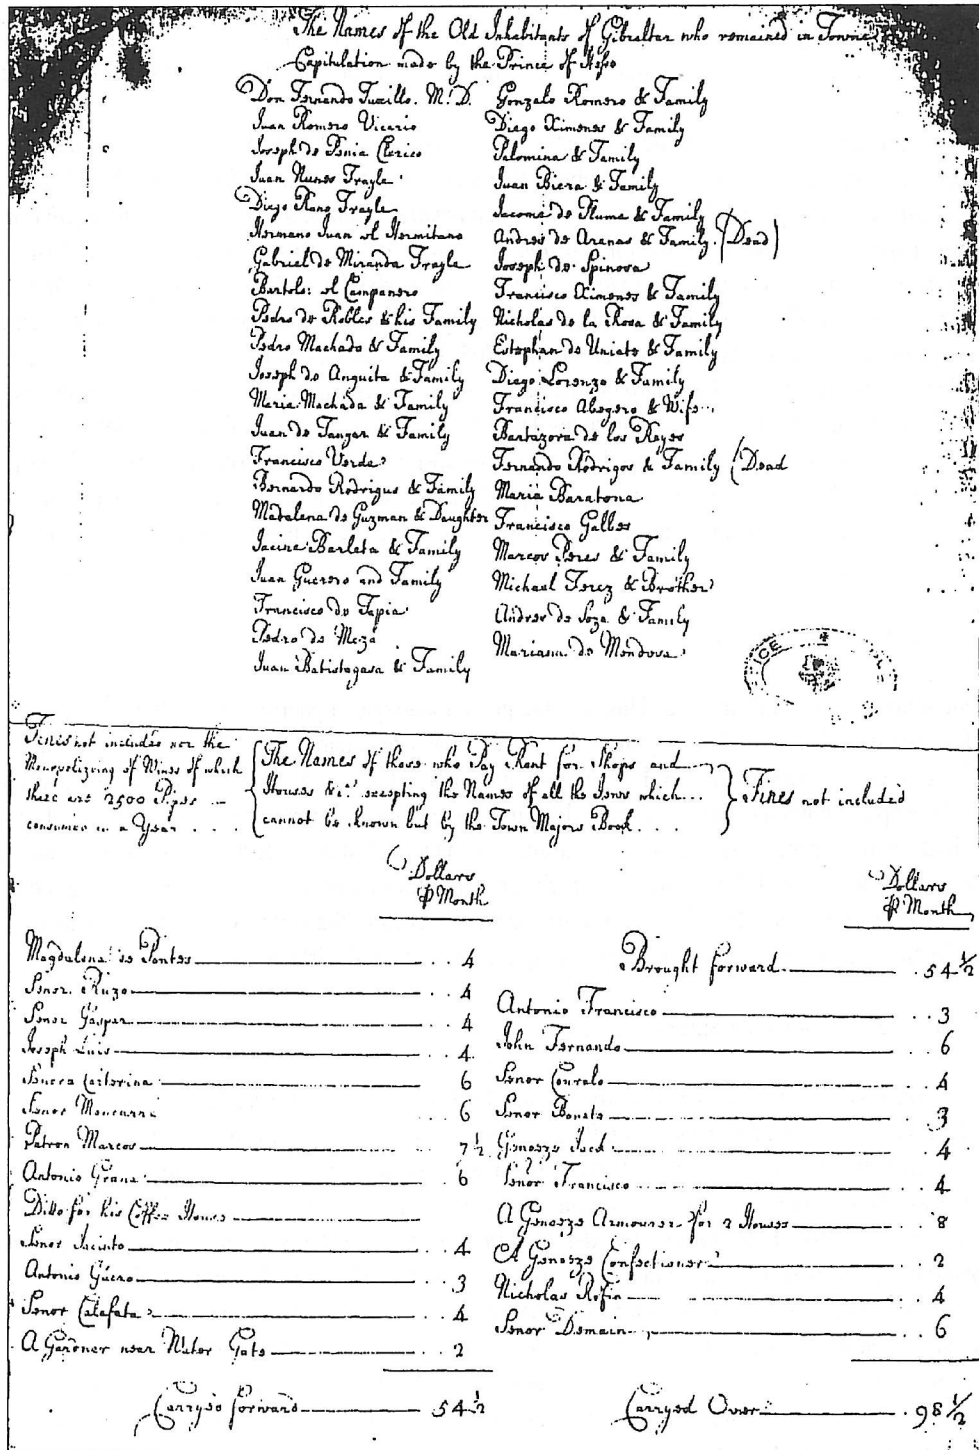 The Names of the Old Inhabitants of Gibraltar who remained in Towne
Capitulation made by the Prince of Hesse
Don Fernando Tuxillo. M. D.
Juan Romero Vicario
Joseph de Penia Clerico
Juan Nunes Frayle
Diego Rano Frayle
Hermano Juan el Hermitano
Gabriel de Miranda Frayle
Bartolo: el Campanero
Pedro de Robles & his Family
Pedro Machado & Family
Joseph de Anguita & Family
Maria Machada & Family
Juan de Tangar & Family
Francisco Verde
Bernardo Rodrigus & Family
Madalena de Guzman & Daughter
Barleta & Family
Juan Guerero and Family
Francisco de Tapia
Pedro de Meza
Juan Batistagasa & Family
Gonzalo Romero & Family
Diego Ximenes & Family
Palomina & Family
Juan Biera & Family
Jacome de Pluma & Family
Andres de Arenas & Family (Dead)
Joseph de Spinosa
Francisco Ximenes & Family
Nicholas de la Rosa & Family
Estephan de Uniate & Family
Diego Lorenzo & Family
Francisco Abegero & Wife
Bartazora de los Reyes
Fernando Rodrigos & Family (Dead
Maria Baratona
Francisco Galbes
Marcos Peres & Family
Michael Ferez & Brother
Andres de Soza & Family
Mariana de Mendosa
Fines not included nor the
Monopolizing of Wines of which
there are 2500 Pipes
consumed in a Year
The Names of those who Pay Rent for Shops and
Houses &c. excepting the Names of all the Jews which
cannot be known but by the Town Majors Book
Fines not included
Dollars
℔ Month
Magdalena de Pontes 4
Senor Ruzo 4
Senor Gaspar 4
Joseph Luis 4
Caiterina 6
Senor 6
Patron Marcos 7½
Antonio Grana 6
Ditto for his Coffee House
Senor Jacinto 4
Antonio Guero 3
Senor Calafata 4
A Gardner near Water Gate 2
Carryed forward 54½
Dollars
℔ Month
Brought forward 54½
Antonio Francisco 3
John Fernando 6
Senor Conralo 4
Senor Bonata 3
Genoeze Jack 4
Senor Francisco 4
A Genoeze Armourer for 2 Houses 8
A Genoeze Confectioner 2
Nicholas Rofin 4
Senor Demain 6
Carryed Over 98½